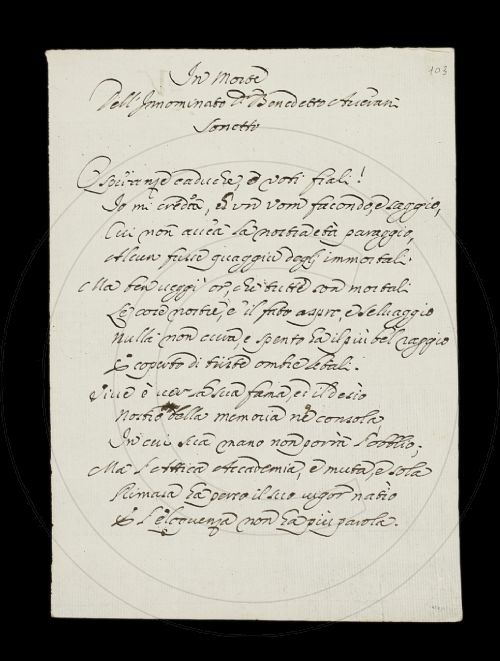 103
In Morte
Dell'Innominato D. Benedetto Averani
Sonetto
O speranze caduche, e voti frali!
Io mi credea, ch'un uom facondo, e saggio,
Cui non avea la nostra età paraggio,
Alcun fusse quaggiù degli immortali.
Ma ben veggi'or, che tutte son mortali
Le cose nostre, e il fato aspro, e selvaggio
Nulla non cura, e spento ha il più bel raggio
E coperto di triste ombre letali.
Vive è ver la sua fama, ed il desio
Nostro della memoria ne consola,
In cui sua mano non porrà l'obblio;
Ma l'Attica Accademia, è muta, e sola
Rimasa ha perso il suo vigor natio
E l'Eloquenza non ha più parola.